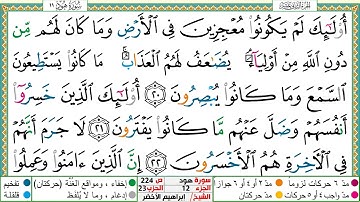 سورة هود ١١
أُو۟لَـٰٓئِكَ لَمْ يَكُونُوا۟ مُعْجِزِينَ فِى ٱلْأَرْضِ وَمَا كَانَ لَهُم مِّن
دُونِ ٱللَّهِ مِنْ أَوْلِيَآءَ ۘ يُضَـٰعَفُ لَهُمُ ٱلْعَذَابُ ۚ مَا كَانُوا۟ يَسْتَطِيعُونَ
ٱلسَّمْعَ وَمَا كَانُوا۟ يُبْصِرُونَ ٢٠ أُو۟لَـٰٓئِكَ ٱلَّذِينَ خَسِرُوٓا۟
أَنفُسَهُمْ وَضَلَّ عَنْهُم مَّا كَانُوا۟ يَفْتَرُونَ ٢١ لَا جَرَمَ أَنَّهُمْ
فِى ٱلْـَٔاخِرَةِ هُمُ ٱلْأَخْسَرُونَ ٢٢ إِنَّ ٱلَّذِينَ ءَامَنُوا۟ وَعَمِلُوا۟
مدّ ٦ حركات لزوماً مدّ ٢ أو ٤ أو ٦ جوازاً إخفاء، ومواقع الغنّة (حركتان) تفخيم
مدّ واجب ٤ أو ٥ حركات مدّ حركتان إدغام، وما لا يُلفظ قلقلة
سورة هود ص 224
الجزء 12 الحزب 23
الشيخ/ إبراهيم الأخضر